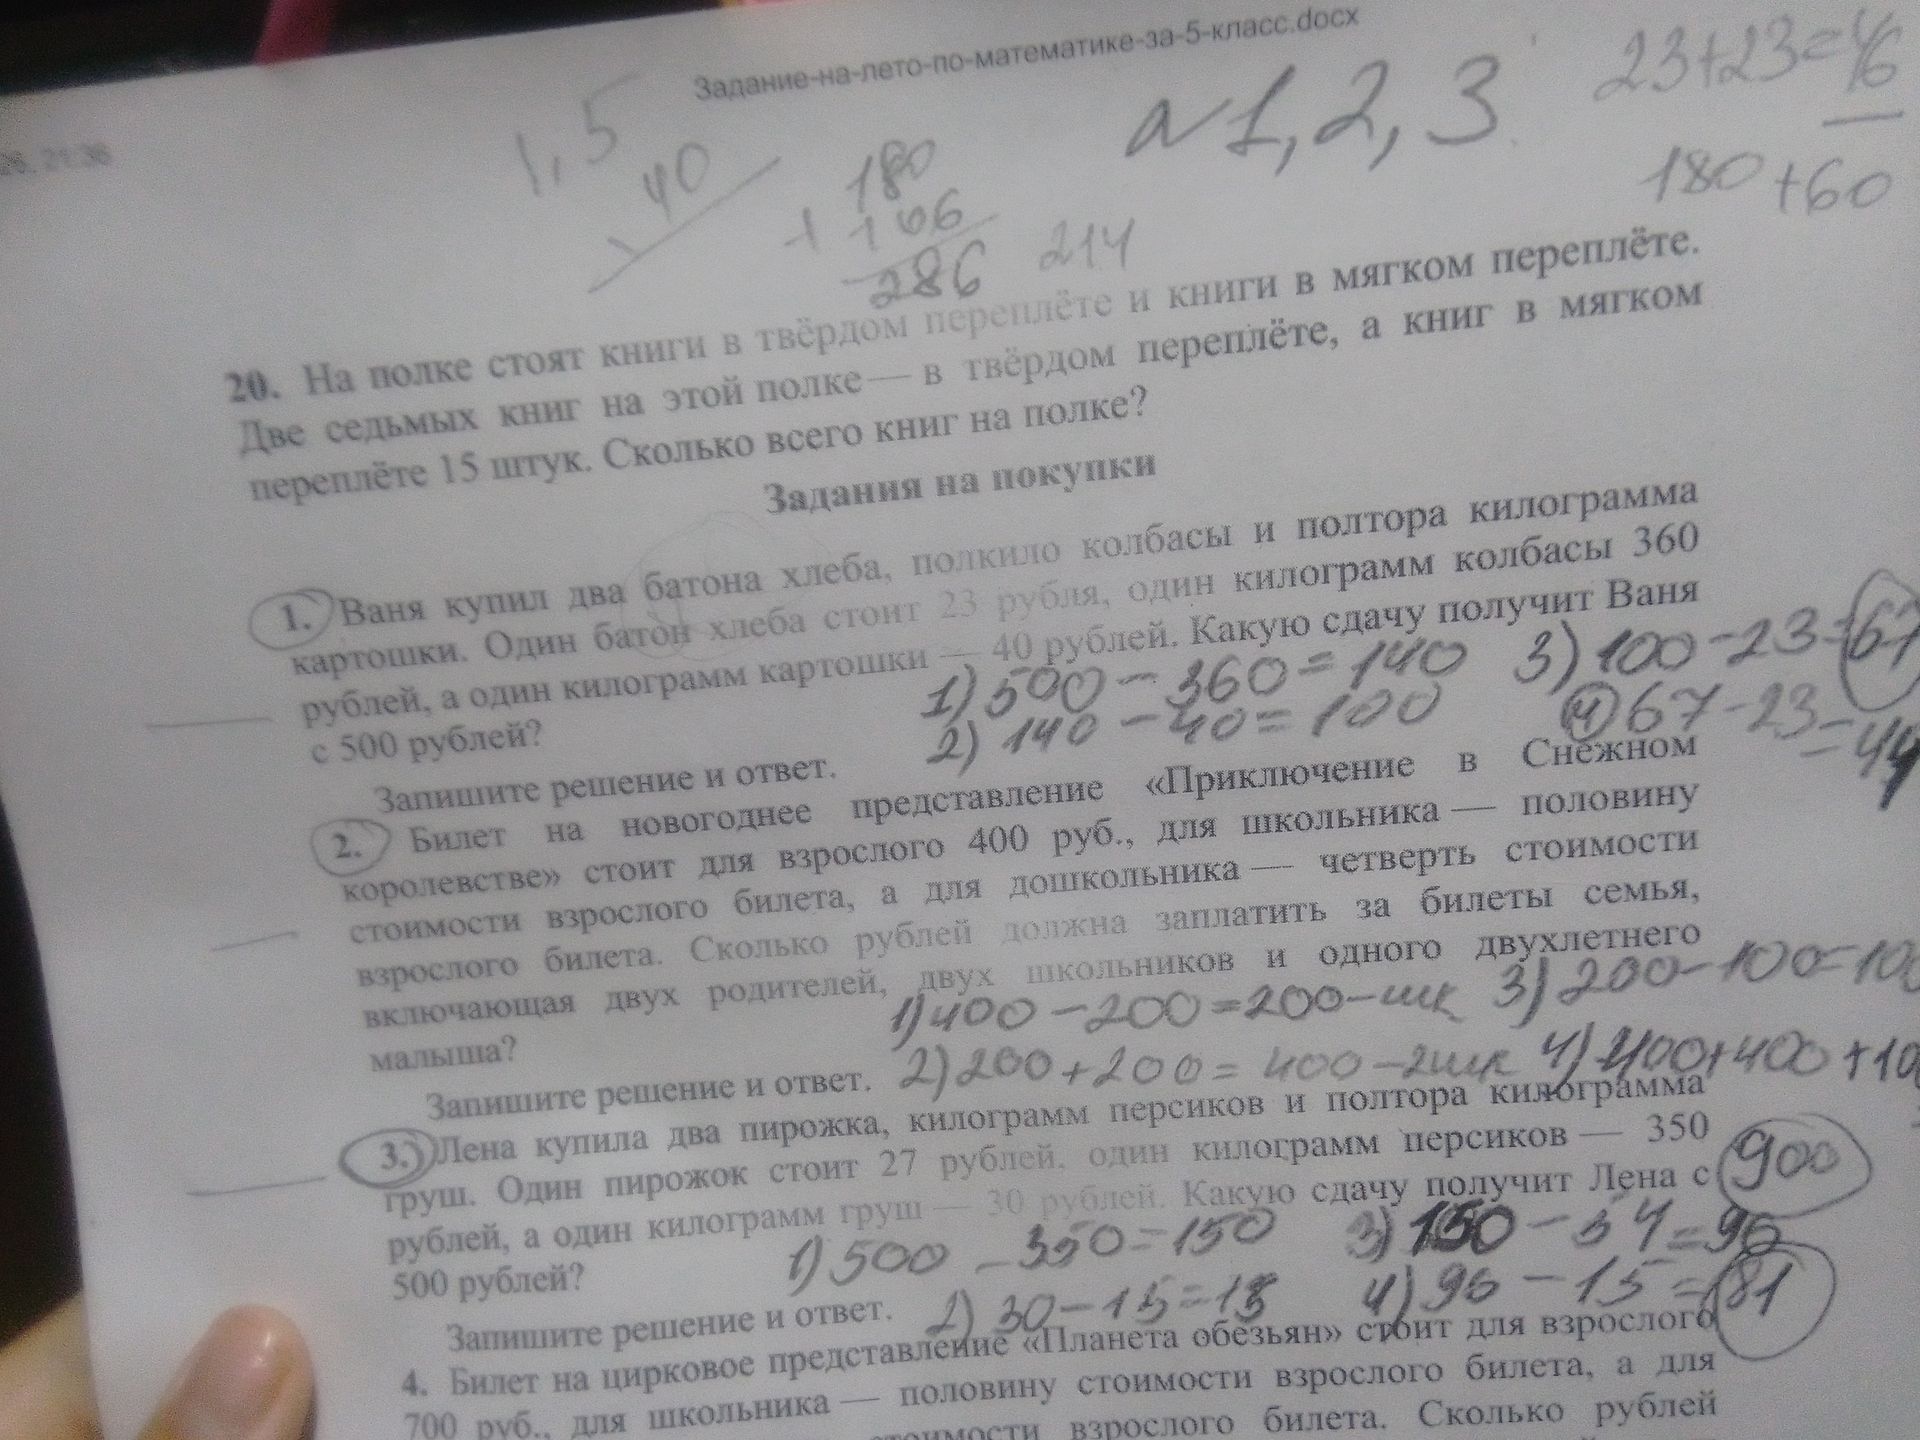 Задание-на-лето-по-математике-за-5-класс.docx
21:36
23+23=46
1,5
40
180
+ 106
286
214
1, 2, 3
180 +60
20. На полке стоят книги в твёрдом переплёте и книги в мягком переплёте.
Две седьмых книг на этой полке — в твёрдом переплёте, а книг в мягком
переплёте 15 штук. Сколько всего книг на полке?
Задания на покупки
1. Ваня купил два батона хлеба, полкило колбасы и полтора килограмма
картошки. Один батон хлеба стоит 23 рубля, один килограмм колбасы 360
рублей, а один килограмм картошки — 40 рублей. Какую сдачу получит Ваня
с 500 рублей?
1) 500 - 360 = 140
3) 100 - 23 = 67
2) 140 - 40 = 100
4) 67 - 23
= 44
Запишите решение и ответ.
2. Билет на новогоднее представление «Приключение в Снежном
королевстве» стоит для взрослого 400 руб., для школьника — половину
стоимости взрослого билета, а для дошкольника — четверть стоимости
взрослого билета. Сколько рублей должна заплатить за билеты семья,
включающая двух родителей, двух школьников и одного двухлетнего
малыша?
1) 400 - 200 = 200 - шк
3) 200 - 100 = 100
Запишите решение и ответ.
2) 200 + 200 = 400 - 2шк
4) 400 + 400 + 100
900
3. Лена купила два пирожка, килограмм персиков и полтора килограмма
груш. Один пирожок стоит 27 рублей, один килограмм персиков — 350
рублей, а один килограмм груш — 30 рублей. Какую сдачу получит Лена с
500 рублей?
1) 500 - 350 = 150
3) 150 - 54 = 96
Запишите решение и ответ.
2) 30 - 15 = 15
4) 96 - 15 = 81
4. Билет на цирковое представление «Планета обезьян» стоит для взрослого
700 руб., для школьника — половину стоимости взрослого билета, а для
стоимости взрослого билета. Сколько рублей